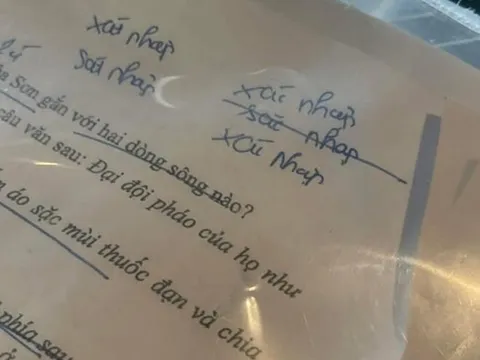 xát nhap
sát nhập
xác nhập
sác nhap
xcú nhap
Sơn gắn với hai dòng sông nào?
câu văn sau: Đại đội pháo của họ như
áo sặc mùi thuốc đạn và chia
phía sau